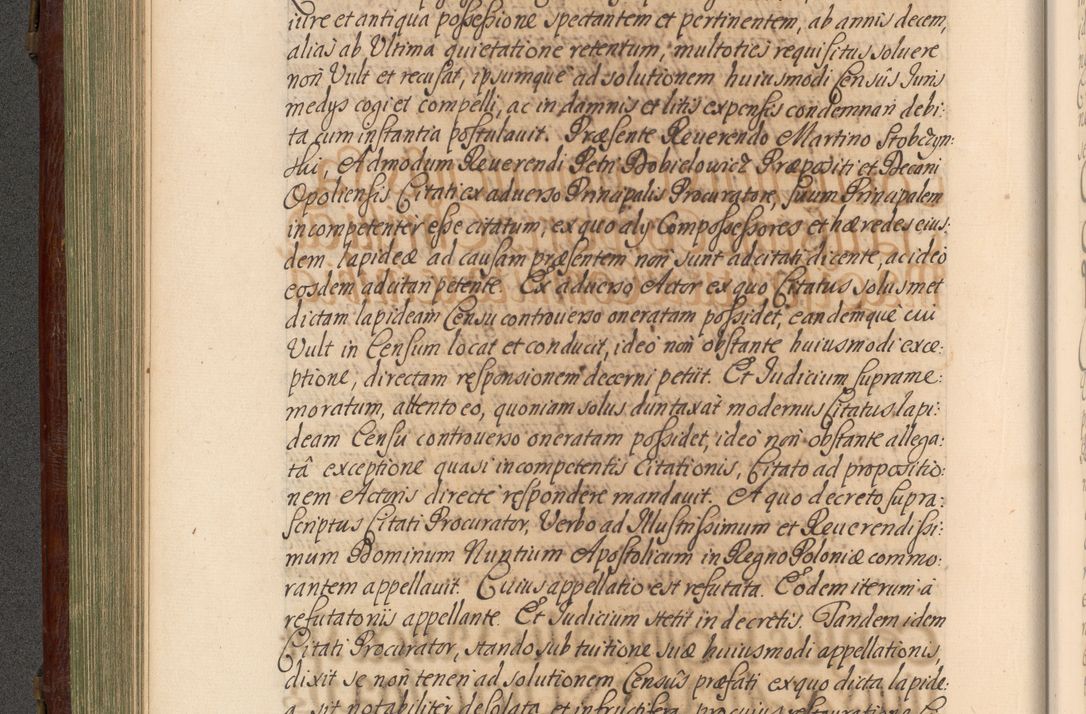 iure et antiqua possessione spectantem et pertinentem, ab annis decem,
alias ab Ultima quietatione retentum, multoties requisitus soluere
non Vult et recusat, ipsumque ad solutionem huiusmodi Censûs Juris
medys cogi et compelli, ac in damnis et litis expensis condemnari debi:
ta cum instantia postulauit. Præsente Reuerendo Martino Stobczyn:
ski, Admodum Reuerendi Petri Dobielowicz Præpositi et Decani
Opoliensis Citati ex aduerso Principalis Procuratore, suum Principalem
incompetenter esse citatum, ex quo aly Compossessores et hæredes eius:
dem lapideæ ad causam præsentem non sunt adcitati dicente, ac ideo
eosdem adcitari petente. Ex aduerso Actor ex quo Citatus solusmet
dictam lapideam Censu controuerso oneratam possidet, eandemque cui
Vult in Censum locat et conducit, ideo non obstante huiusmodi exce:
ptione, directam responsionem decerni petiit. Et Judicium suprame:
moratum, attento eo, quoniam solus duntaxat modernus Citatus lapi:
deam Censu controuerso oneratam possidet, ideo non obstante allega:
tâ exceptione quasi incompetentis Citationis, Citato ad propositio:
nem Actoris directe respondere mandauit. A quo decreto supra:
scriptus Citati Procurator, Verbo ad Illustrissimum et Reuerendissi:
mum Dominum Nuntium Apostolicum in Regno Poloniæ commo:
rantem appellauit. Cuius appellatio est refutata. Eodem iterum à
refutatoriis appellante. Et Judicium stetit in decretis. Tandem idem
Citati Procurator, stando sub tuitione suæ huiusmodi appellationis,
dixit se non teneri ad solutionem Censûs præfati ex quo dicta lapide:
a sit notabiliter desolata et infructifera, pro cuius restauratione